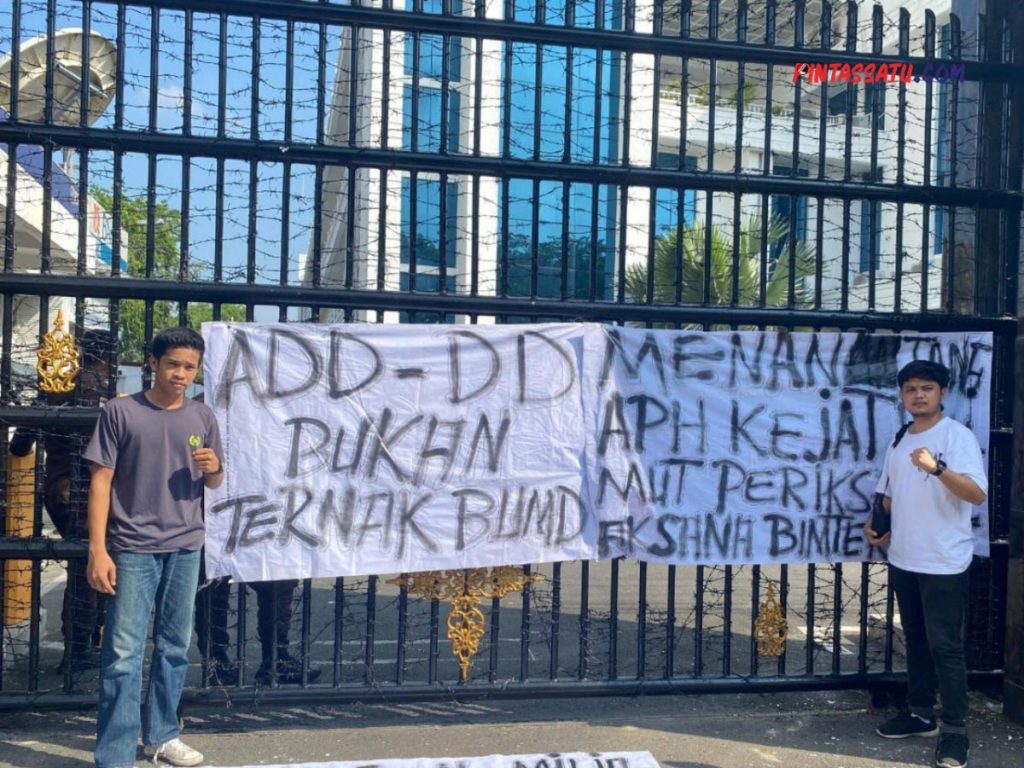 PINTASSATU.COM
ADD-DD
BUKAN
TERNAK BUMD
MENAN TANG
APH KEJAT
MUT PERIKS
BIMTEK